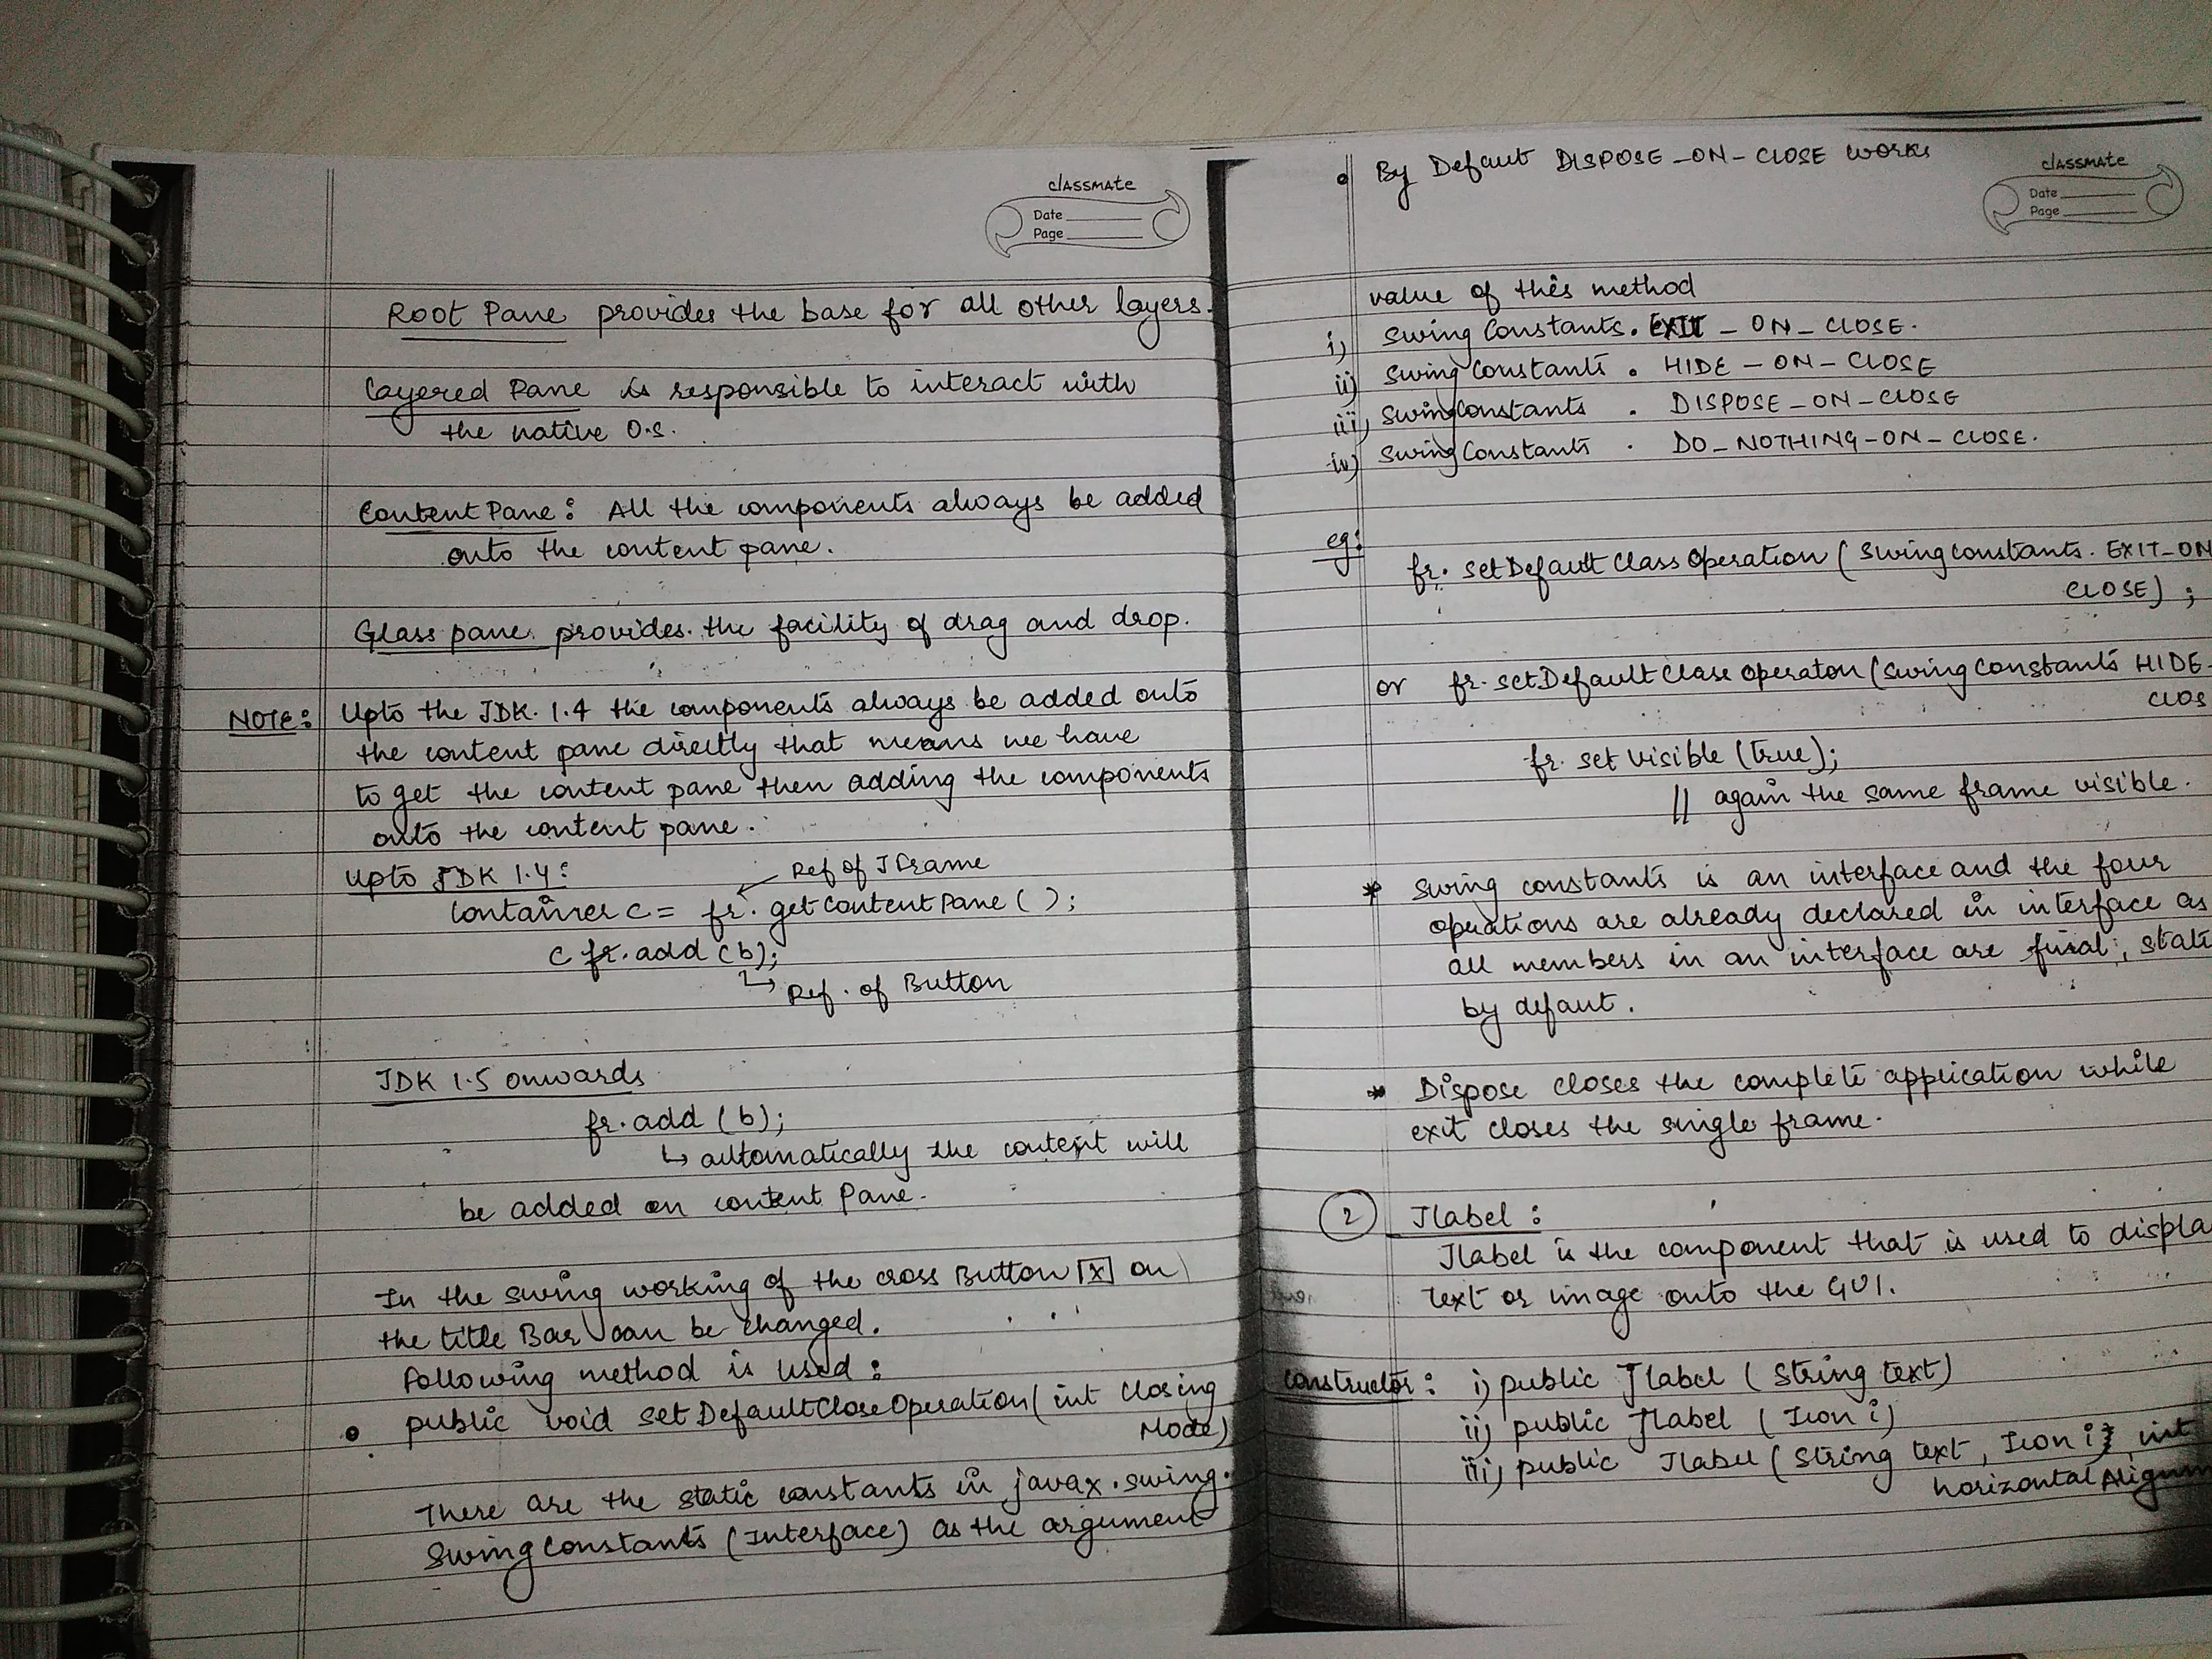 classmate
Date
Page
Root Pane provides the base for all other layers.
Layered Pane is responsible to interact with
the native O.S.
Content Pane: All the components always be added
onto the content pane.
Glass pane provides the facility of drag and drop.
NOTE: Upto the JDK 1.4 the components always be added onto
the content pane directly that means we have
to get the content pane then adding the components
onto the content pane.
Upto JDK 1.4:
Ref of JFrame
Container c = fr. getContentPane ( );
c fr. add (b);
Ref. of Button
JDK 1.5 onwards
fr. add (b);
↳ automatically the content will
be added on content Pane.
In the swing working of the cross Button [X] on
the title Bar can be changed.
Following method is used:
• public void setDefaultCloseOperation( int closing
Mode)
There are the static constants in javax.swing.
SwingConstants (Interface) as the argument
• By Defaut DISPOSE_ON_CLOSE works
classmate
Date
Page
value of this method
i) SwingConstants. EXIT_ON_CLOSE.
ii) SwingConstants. HIDE_ON_CLOSE
iii) SwingConstants. DISPOSE_ON_CLOSE
iv) SwingConstants. DO_NOTHING_ON_CLOSE.
eg:
fr. setDefault Class Operation ( SwingConstants. EXIT_ON
CLOSE) ;
or fr. setDefault Clase Operaton ( Swing Constants HIDE-
CLOS
fr. set visible (true);
// again the same frame visible.
* Swing constants is an interface and the four
operations are already declared in interface as
all members in an interface are final, stati
by defaut.
* Dispose closes the complete application while
exit closes the single frame.
2 Jlabel:
Jlabel is the component that is used to displa
text or image onto the GUI.
Constructor: i) public Jlabel ( String text)
ii) public Jlabel ( Icon i)
iii) public Jlabel ( String text, Icon i, int
horizontal Alignm